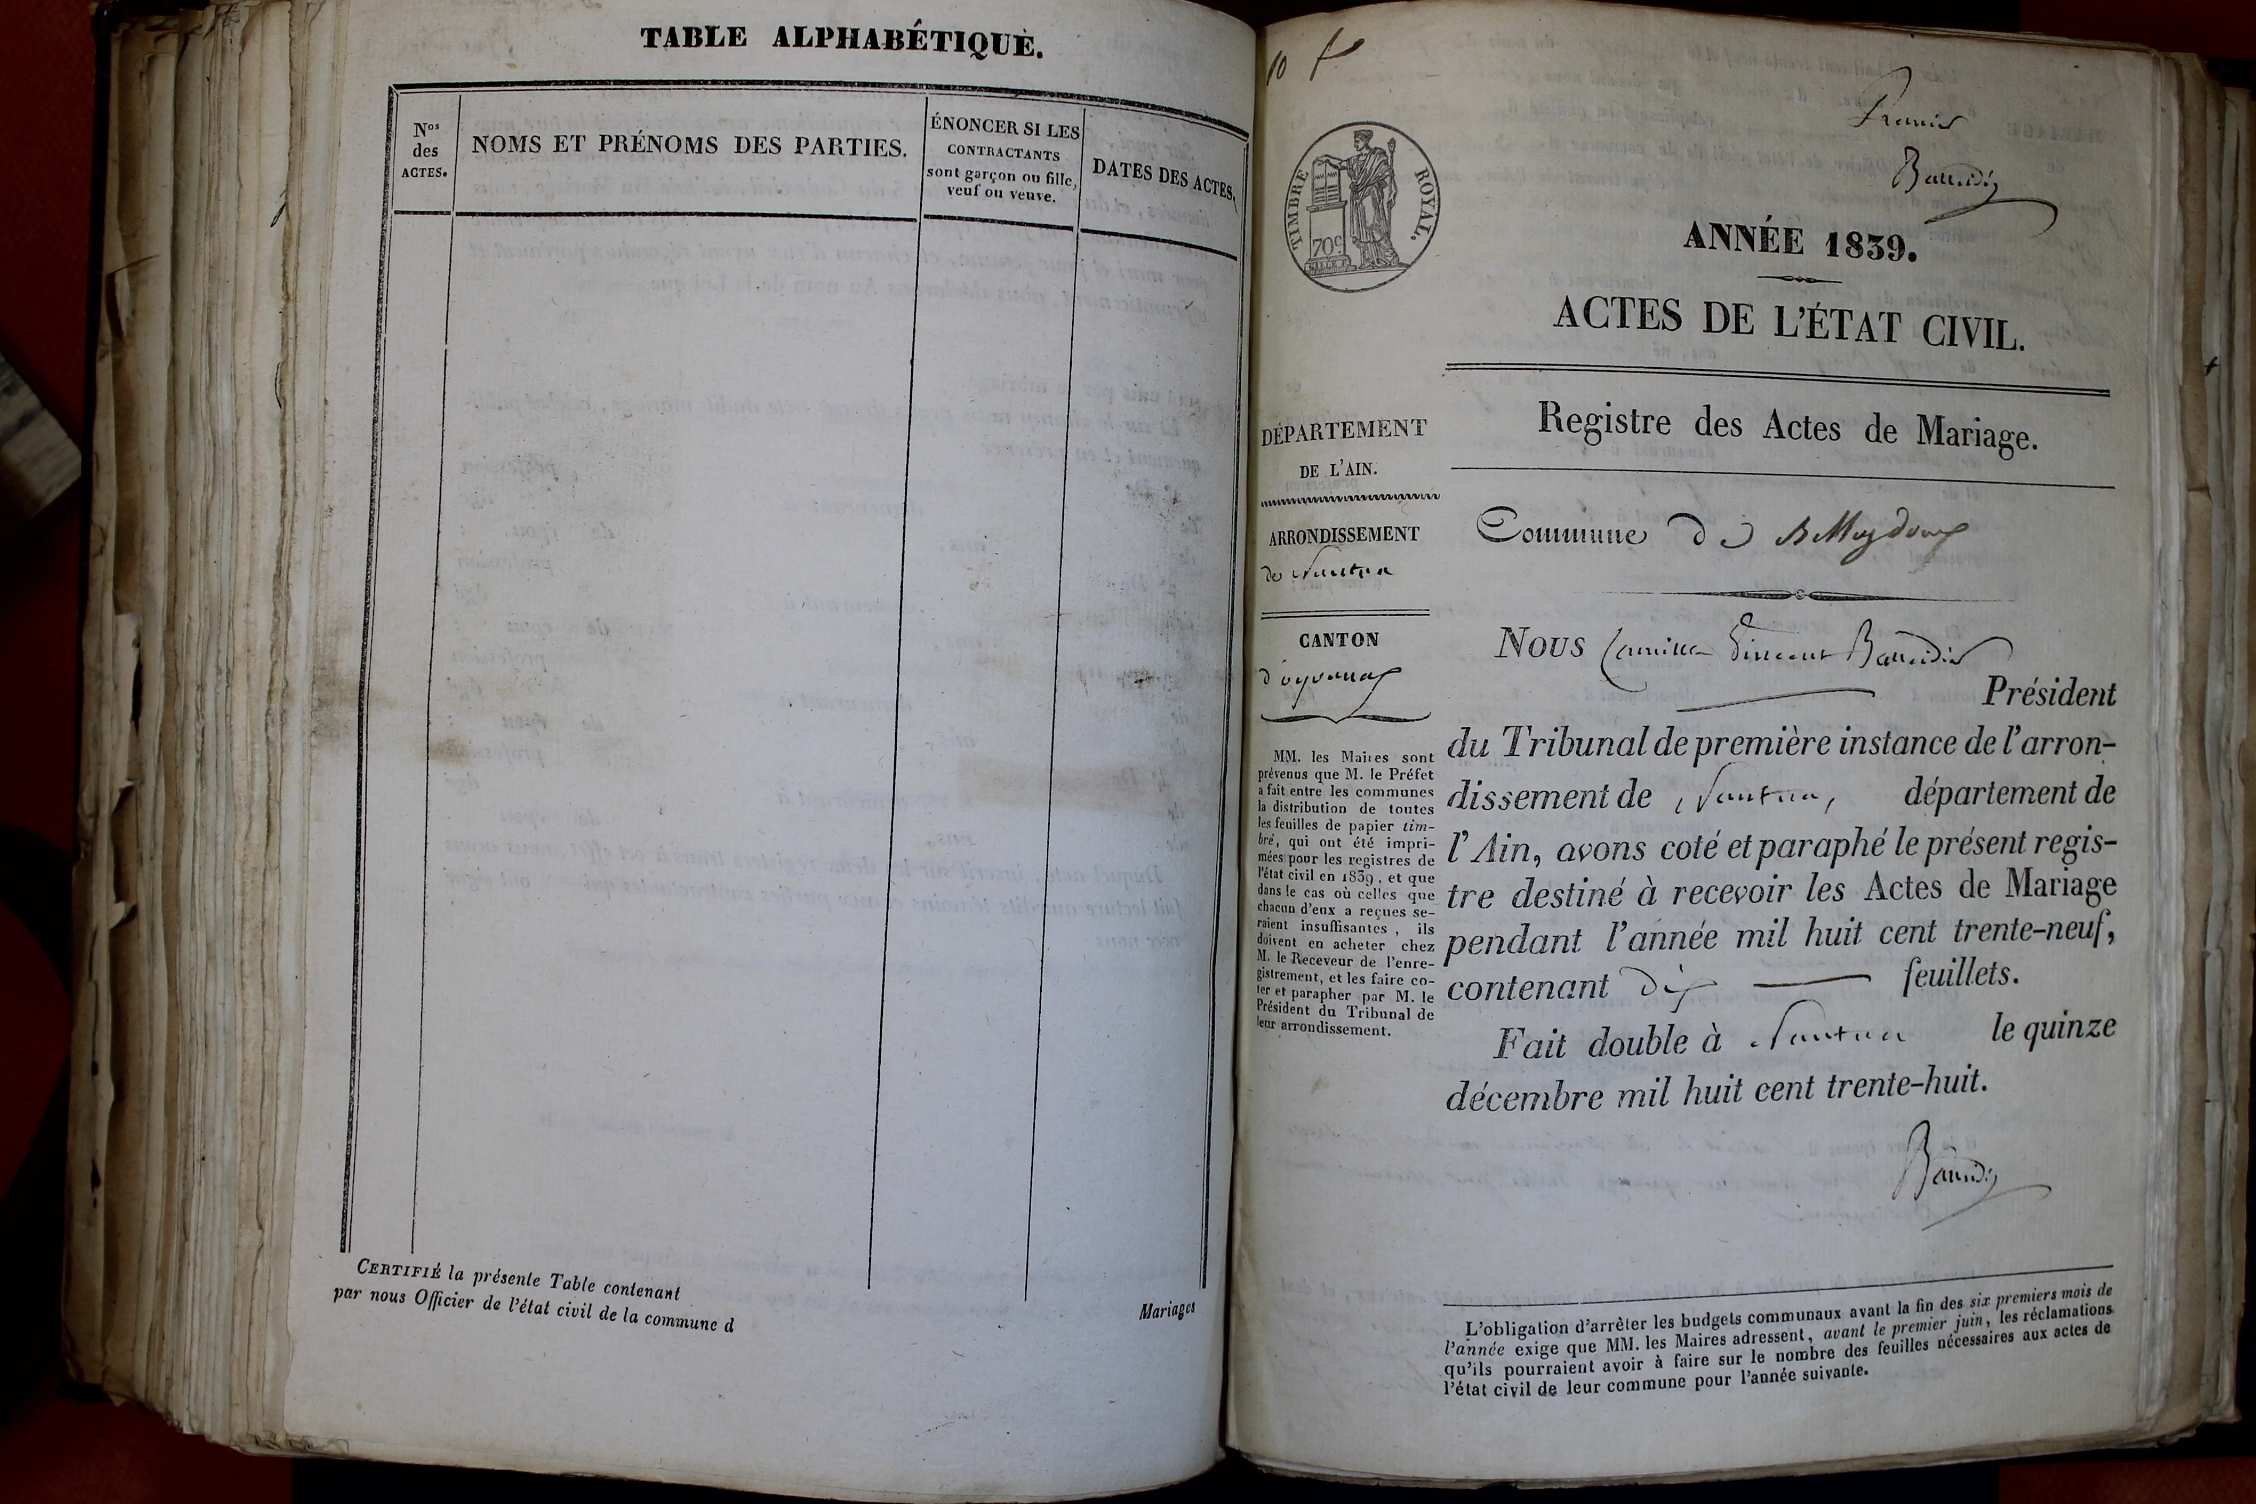 TABLE ALPHABÉTIQUE.
Nos
des
ACTES.
NOMS ET PRÉNOMS DES PARTIES.
ÉNONCER SI LES
CONTRACTANTS
sont garçon ou fille,
veuf ou veuve.
DATES DES ACTES.
CERTIFIÉ la présente Table contenant
Mariages
par nous Officier de l'état civil de la commune d
10 f
TIMBRE ROYAL.
70c
Premier
Baudin
ANNÉE 1839.
ACTES DE L'ÉTAT CIVIL.
Registre des Actes de Mariage.
DÉPARTEMENT
DE L'AIN.
ARRONDISSEMENT
de Nantua
CANTON
d'oyonnax
MM. les Maires sont
prévenus que M. le Préfet
a fait entre les communes
la distribution de toutes
les feuilles de papier tim-
bré, qui ont été impri-
mées pour les registres de
l'état civil en 1839, et que
dans le cas où celles que
chacun d'eux a reçues se-
raient insuffisantes, ils
doivent en acheter chez
M. le Receveur de l'enre-
gistrement, et les faire co-
ter et parapher par M. le
Président du Tribunal de
leur arrondissement.
Commune de Belleydoux
NOUS Camille Vincent
Président
du Tribunal de première instance de l'arron-
dissement de Nantua, département de
l'Ain, avons coté et paraphé le présent regis-
tre destiné à recevoir les Actes de Mariage
pendant l'année mil huit cent trente-neuf,
contenant dix feuillets.
Fait double à Nantua le quinze
décembre mil huit cent trente-huit.
L'obligation d'arrêter les budgets communaux avant la fin des six premiers mois de
l'année exige que MM. les Maires adressent, avant le premier juin, les réclamations
qu'ils pourraient avoir à faire sur le nombre des feuilles nécessaires aux actes de
l'état civil de leur commune pour l'année suivante.